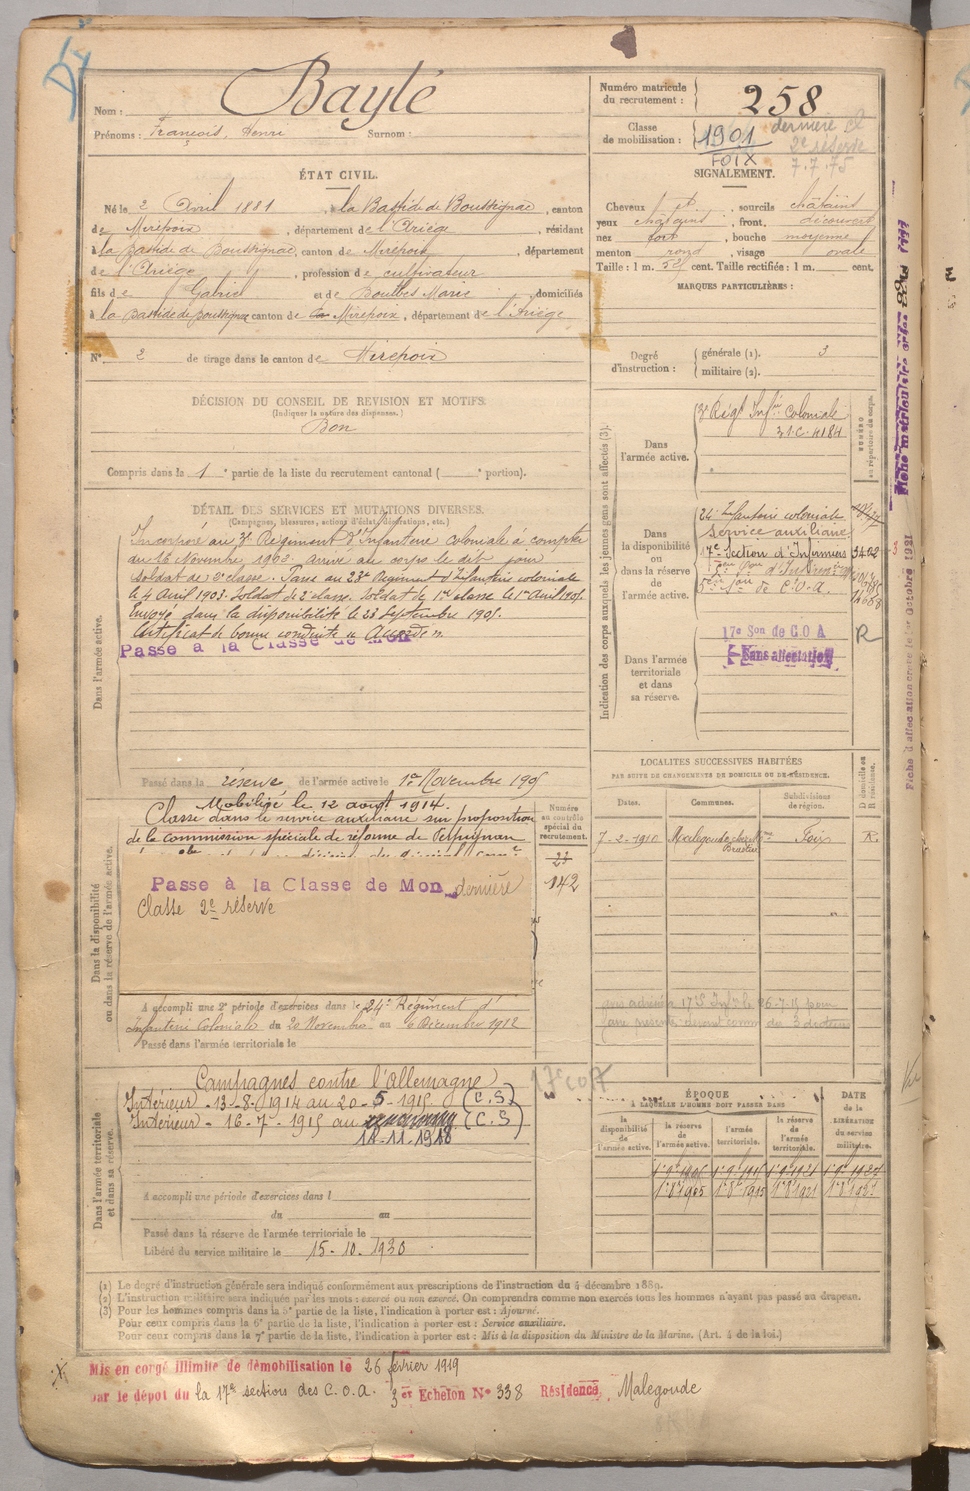 Nom : Baylé
Prénoms : François, Henri Surnom :
Numéro matricule du recrutement : 258
Classe de mobilisation : 1901
dernière cl
2e réserve
7.7.75
FOIX
ÉTAT CIVIL.
Né le 2 Avril 1881, à la Bastide de Boussignac, canton
de Mirepoix, département de l'Ariège, résidant
à la Bastide de Boussignac, canton de Mirepoix, département
de l'Ariège, profession de cultivateur
fils de Gabriel et de Boulbes Marie domiciliés
à la Bastide de Boussignac canton de Mirepoix, département de l'Ariège
N° 2 de tirage dans le canton de Mirepoix
SIGNALEMENT.
Cheveux et, sourcils châtains
yeux châtains, front, découvert
nez fort, bouche moyenne
menton rond, visage ovale
Taille : 1 m. cent. Taille rectifiée : 1 m. cent.
MARQUES PARTICULIÈRES :
Degré d'instruction : générale (1). 3
militaire (2).
DÉCISION DU CONSEIL DE REVISION ET MOTIFS.
(Indiquer la nature des dispenses.)
Bon
Compris dans la 1e partie de la liste du recrutement cantonal ( e portion).
DÉTAIL DES SERVICES ET MUTATIONS DIVERSES.
(Campagnes, blessures, actions d'éclat, décorations, etc.)
Dans l'armée active.
Incorporé au 3e Régiment d'Infanterie coloniale à compter
du 16 Novembre arrivé au corps le dit jour
soldat de 2e classe. Passé au 23e Régiment d'Infanterie coloniale
le 4 Avril 1903. Soldat de 2e classe. Soldat de 1re classe le 1er Avril
Envoyé dans la disponibilité le 23 Septembre
Certificat de bonne conduite Accordé
Passé à la Classe de Mon
Passé dans la réserve de l'armée active le 1er Novembre
Indication des corps auxquels les jeunes gens sont affectés (3).
NUMÉRO au répertoire du corps.
Dans l'armée active.
3e Régt Infrie coloniale
31.C.4184
Dans la disponibilité ou dans la réserve de l'armée active.
24e Infanterie coloniale
Service auxiliaire
17e Section d'Infirmiers 3422
de C.O.A.
Dans l'armée territoriale et dans sa réserve.
17e Son de C O A R
Sans affectation
Dans la disponibilité ou dans la réserve de l'armée active.
Mobilisé le 12 août 1914.
Classé dans le service auxiliaire sur proposition
de la commission spéciale de réforme de Perpignan
Passé à la Classe de Mon dernière
Classe 2e réserve
Numéro au contrôle spécial du recrutement.
142
A accompli une 2e période d'exercices dans le 24e Régiment d'
Infanterie Coloniale du 20 Novembre au 6 Décembre 1912
Passé dans l'armée territoriale le
LOCALITES SUCCESSIVES HABITÉES
PAR SUITE DE CHANGEMENTS DE DOMICILE OU DE RÉSIDENCE.
Dates. Communes. Subdivisions de région. D domicile ou R résidence.
7-2-1910 Malegoude chez Mme Foix R.
17e COA
Dans l'armée territoriale et dans sa réserve.
Campagnes contre l'Allemagne
Intérieur - 13-8-1914 au 20-5-1915 (C.S)
Intérieur - 16-7-1915 au (C.S)
11-11-1918
A accompli une période d'exercices dans l
du au
Passé dans la réserve de l'armée territoriale le
Libéré du service militaire le 15-10-1930
ÉPOQUE
A LAQUELLE L'HOMME DOIT PASSER DANS
la disponibilité de l'armée active. la réserve de l'armée active. l'armée territoriale. la réserve de l'armée territoriale.
DATE de la LIBÉRATION du service militaire.
(1) Le degré d'instruction générale sera indiqué conformément aux prescriptions de l'instruction du 4 décembre 1889.
(2) L'instruction militaire sera indiquée par les mots : exercé ou non exercé. On comprendra comme non exercés tous les hommes n'ayant pas passé au drapeau.
(3) Pour les hommes compris dans la 5e partie de la liste, l'indication à porter est : Ajourné.
Pour ceux compris dans la 6e partie de la liste, l'indication à porter est : Service auxiliaire.
Pour ceux compris dans la 7e partie de la liste, l'indication à porter est : Mis à la disposition du Ministre de la Marine. (Art. 4 de la loi.)
Mis en congé illimité de démobilisation le 26 février 1919
par le dépôt du la 17e section des C.O.A. 3e Echelon N° 338 Résidence, Malegoude